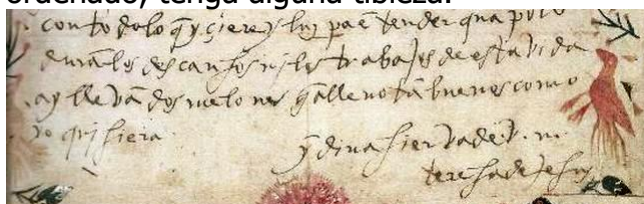 ordenado, tenga alguna tibieza.
con todo lo q yçiere y luz pa entender quã poco
duran los descansos ni los trabajos de esta vida
ay lle van dos melones q allé no tã buenos como
yo quisiera
yndina sierva de v. m.
teresa de jesus